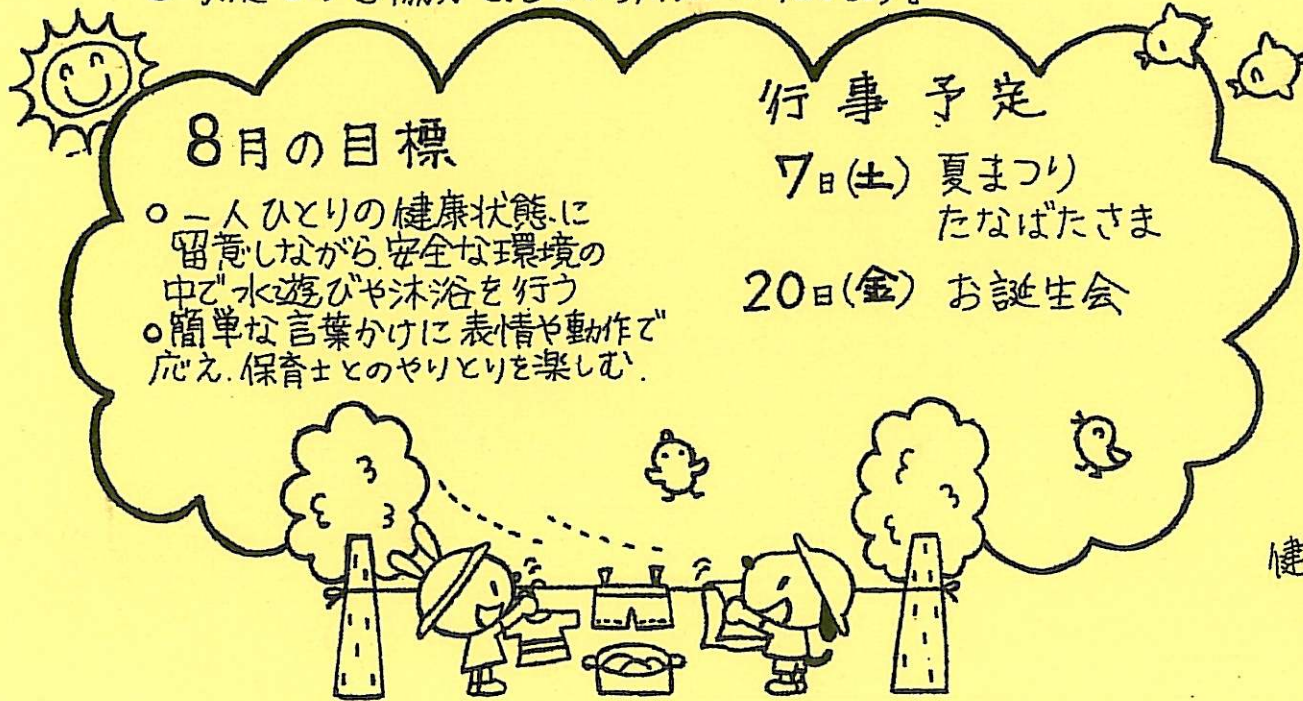 8月の目標
○一人ひとりの健康状態に
留意しながら、安全な環境の
中で水遊びや沐浴を行う
○簡単な言葉かけに表情や動作で
応え、保育士とのやりとりを楽しむ。
行事予定
7日(土) 夏まつり
たなばたさま
20日(金) お誕生会
健